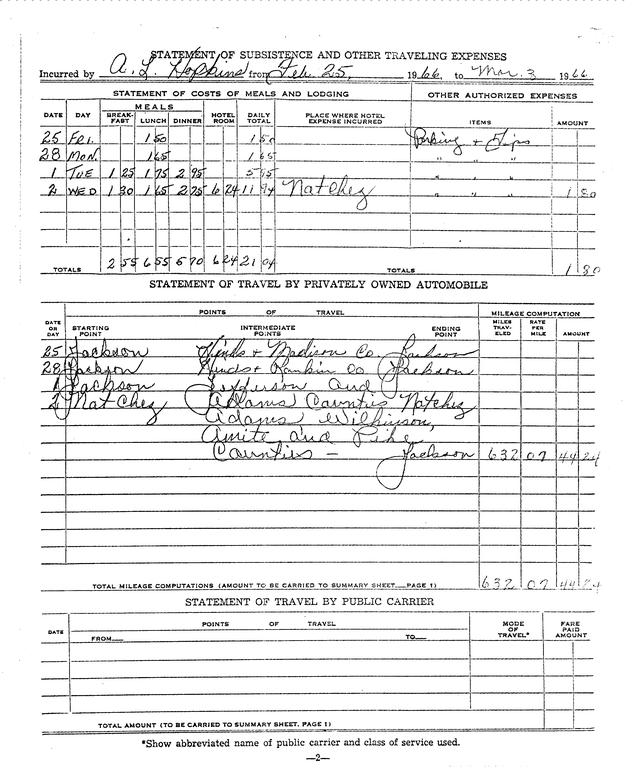 STATEMENT OF SUBSISTENCE AND OTHER TRAVELING EXPENSES
Incurred by A. L. Hopkins from Feb. 25, 1966, to Mar. 3 1966
STATEMENT OF COSTS OF MEALS AND LODGING OTHER AUTHORIZED EXPENSES
DATE DAY MEALS BREAK-FAST LUNCH DINNER HOTEL ROOM DAILY TOTAL PLACE WHERE HOTEL EXPENSE INCURRED ITEMS AMOUNT
25 Fri. 1 50 1 50 Parking + Tips
28 Mon. 1 65 1 65 " " "
1 TUE 1 25 1 75 2 95 5 95 " " "
2 WED 1 30 1 65 2 75 6 24 11 94 Natchez " " " 1 80
TOTALS 2 55 6 55 5 70 6 24 21 04 TOTALS 1 80
STATEMENT OF TRAVEL BY PRIVATELY OWNED AUTOMOBILE
POINTS OF TRAVEL MILEAGE COMPUTATION
DATE OR DAY STARTING POINT INTERMEDIATE POINTS ENDING POINT MILES TRAV-ELED RATE PER MILE AMOUNT
25 Jackson Hinds + Madison Co. Jackson
28 Jackson Hinds + Rankin Co. Jackson
1 Jackson Jefferson and
2 Natchez Adams Counties Natchez
Adams Wilkinson,
Amite and Pike
Counties - Jackson 632 07 44 24
TOTAL MILEAGE COMPUTATIONS (AMOUNT TO BE CARRIED TO SUMMARY SHEET PAGE 1) 632 07 44 24
STATEMENT OF TRAVEL BY PUBLIC CARRIER
DATE POINTS OF TRAVEL MODE OF TRAVEL* FARE PAID AMOUNT
FROM TO
TOTAL AMOUNT (TO BE CARRIED TO SUMMARY SHEET, PAGE 1)
*Show abbreviated name of public carrier and class of service used.
—2—